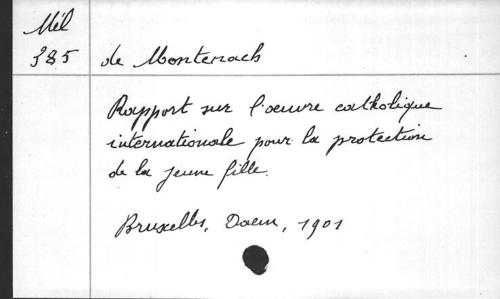 Mél
385 de Montenach
Rapport sur l'oeuvre catholique
internationale pour la protection
de la jeune fille.
Bruxelles, Daem, 1901